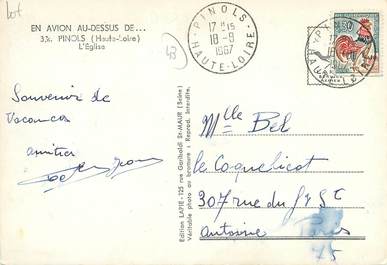 lot
EN AVION AU-DESSUS DE...
PINOLS (Haute-Loire)
L'Église
43
PINOLS
17 H15
18-9
1967
HAUTE-LOIRE
Souvenir de
Vacances
amitiés
Edition LAPIE - 125 rue Garibaldi St-MAUR (Seine)
Véritable photo au bromure : Reprod. Interdite.
Mlle Bel
Le Coquelicot
307 rue du Fg St
Antoine Paris
75